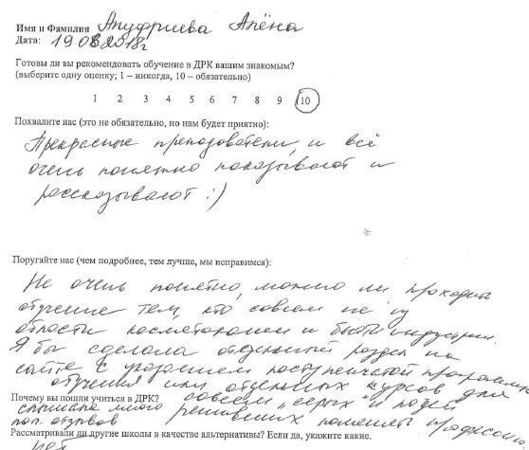 Имя и Фамилия Ануфриева Алёна
Дата: 19.08.2018г
Готовы ли вы рекомендовать обучение в ДРК вашим знакомым?
(выберите одну оценку; 1 – никогда, 10 – обязательно)
1 2 3 4 5 6 7 8 9 10
Похвалите нас (это не обязательно, но нам будет приятно):
Прекрасные преподователи, и всё
очень понятно показывают и
рассказывают :)
Поругайте нас (чем подробнее, тем лучше, мы исправимся):
Не очень понятно, можно ли проходить
обучение тем, кто совсем не из
области косметологии и бьюти индустрии.
Я бы сделала отдельный раздел на
сайте с указанием поступенчатой программы
обучения или отдельных курсов для
совсем "серых" и людей
Почему вы пошли учиться в ДРК?
решивших поменять профессию.
слышала много
пол. отзывов
Рассматривали ли другие школы в качестве альтернативы? Если да, укажите какие.
нет